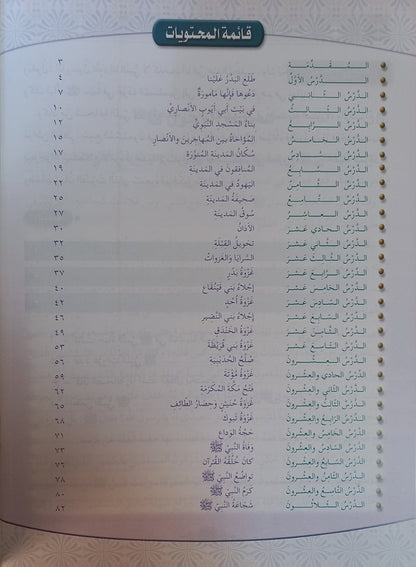 قائمة المحتويات
المقدمة ٣
الدَّرْسُ الأَوَّلُ طَلَعَ البَدْرُ عَلَيْنَا ٤
الدَّرْسُ الثَّانِي دَعُوهَا فَإِنَّهَا مَأمُورَةٌ ٧
الدَّرْسُ الثَّالِثُ فِي بَيْتِ أَبِي أَيُّوبَ الأَنْصَارِيِّ ١٠
الدَّرْسُ الرَّابِعُ بِنَاءُ المَسْجِدِ النَّبَوِيِّ ١٢
الدَّرْسُ الخَامِسُ المُؤَاخَاةُ بَيْنَ المُهَاجِرِينَ وَالأَنْصَارِ ١٥
الدَّرْسُ السَّادِسُ سُكَّانُ المَدِينَةِ المُنَوَّرَةِ ١٧
الدَّرْسُ السَّابِعُ المُنَافِقُونَ فِي المَدِينَةِ ١٩
الدَّرْسُ الثَّامِنُ اليَهُودُ فِي المَدِينَةِ ٢٢
الدَّرْسُ التَّاسِعُ صَحِيفَةُ المَدِينَةِ ٢٥
الدَّرْسُ العَاشِرُ سُوقُ المَدِينَةِ ٢٧
الدَّرْسُ الحَادِي عَشَرَ الأَذَانُ ٣٠
الدَّرْسُ الثَّانِي عَشَرَ تَحْوِيلُ القِبْلَةِ ٣٢
الدَّرْسُ الثَّالِثَ عَشَرَ السَّرَايَا وَالغَزَوَاتُ ٣٥
الدَّرْسُ الرَّابِعَ عَشَرَ غَزْوَةُ بَدْرٍ ٣٧
الدَّرْسُ الخَامِسَ عَشَرَ إِجْلَاءُ بَنِي قَيْنُقَاع ٤٠
الدَّرْسُ السَّادِسَ عَشَرَ غَزْوَةُ أُحُدٍ ٤٢
الدَّرْسُ السَّابِعَ عَشَرَ إِجْلَاءُ بَنِي النَّضِيرِ ٤٦
الدَّرْسُ الثَّامِنَ عَشَرَ غَزْوَةُ الخَنْدَقِ ٤٩
الدَّرْسُ التَّاسِعَ عَشَرَ غَزْوَةُ بَنِي قُرَيْظَةَ ٥٣
الدَّرْسُ العِشْرُونَ صُلْحُ الحُدَيْبِيَةِ ٥٦
الدَّرْسُ الحَادِي وَالعِشْرُونَ غَزْوَةُ مُؤْتَةَ ٥٩
الدَّرْسُ الثَّانِي وَالعِشْرُونَ فَتْحُ مَكَّةَ المُكَرَّمَةِ ٦٢
الدَّرْسُ الثَّالِثُ وَالعِشْرُونَ غَزْوَةُ حُنَيْنٍ وَحِصَارُ الطَّائِفِ ٦٥
الدَّرْسُ الرَّابِعُ وَالعِشْرُونَ غَزْوَةُ تَبُوكَ ٦٨
الدَّرْسُ الخَامِسُ وَالعِشْرُونَ حَجَّةُ الوَدَاعِ ٧١
الدَّرْسُ السَّادِسُ وَالعِشْرُونَ وَفَاةُ النَّبِيِّ ﷺ ٧٣
الدَّرْسُ السَّابِعُ وَالعِشْرُونَ كَانَ خُلُقُهُ القُرْآنَ ٧٦
الدَّرْسُ الثَّامِنُ وَالعِشْرُونَ تَوَاضُعُ النَّبِيِّ ﷺ ٧٨
الدَّرْسُ التَّاسِعُ وَالعِشْرُونَ كَرَمُ النَّبِيِّ ﷺ ٨٠
الدَّرْسُ الثَّلَاثُونَ شَجَاعَةُ النَّبِيِّ ﷺ ٨٢